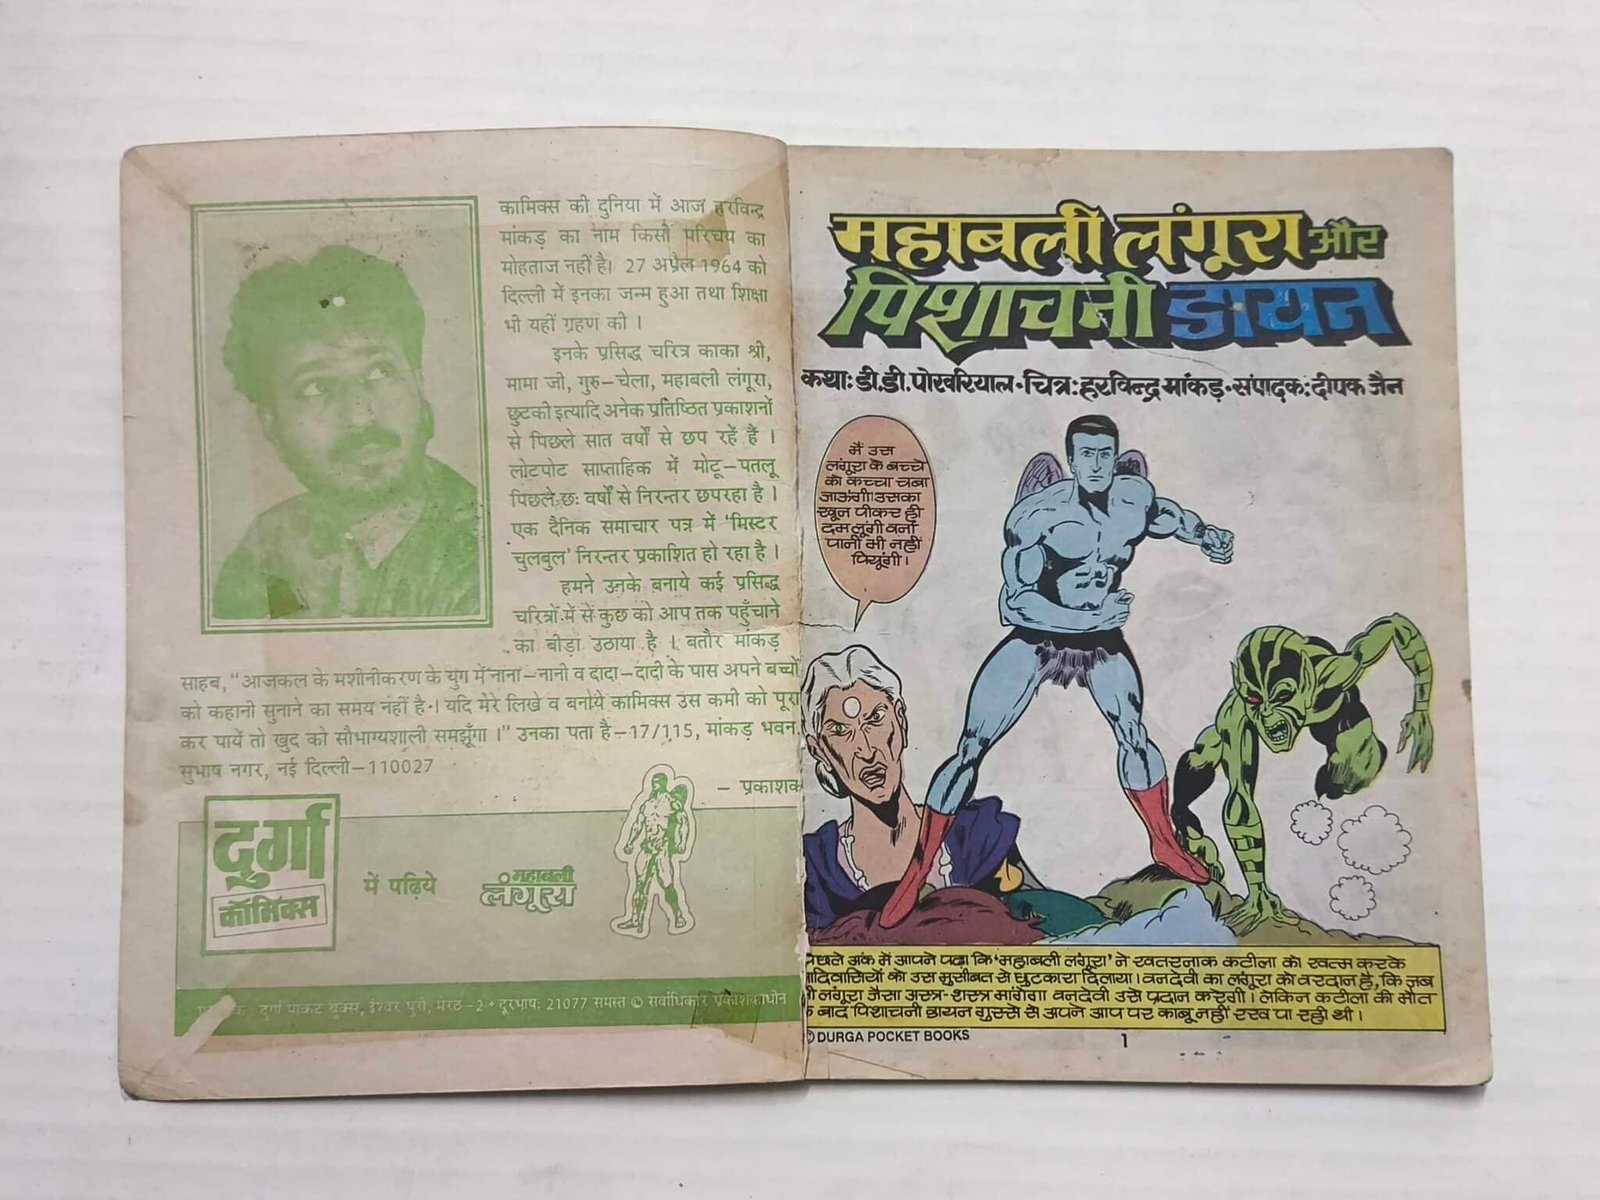 कामिक्स की दुनिया में आज हरविन्द्र
मांकड़ का नाम किसी परिचय का
मोहताज नहीं है। 27 अप्रैल 1964 को
दिल्ली में इनका जन्म हुआ तथा शिक्षा
भी यहीं ग्रहण की ।
इनके प्रसिद्ध चरित्र काका श्री,
मामा जी, गुरु-चेला, महाबली लंगूरा,
छुटकी इत्यादि अनेक प्रतिष्ठित प्रकाशनों
से पिछले सात वर्षों से छप रहें हैं ।
लोटपोट साप्ताहिक में मोटू-पतलू
पिछले छः वर्षों से निरन्तर छपरहा है ।
एक दैनिक समाचार पत्र में 'मिस्टर
चुलबुल' निरन्तर प्रकाशित हो रहा है ।
हमने उनके बनाये कई प्रसिद्ध
चरित्रों में से कुछ को आप तक पहुँचाने
का बीड़ा उठाया है । बतौर मांकड़
साहब, "आजकल के मशीनीकरण के युग में नाना-नानी व दादा-दादी के पास अपने बच्चों
को कहानी सुनाने का समय नहीं है । यदि मेरे लिखे व बनाये कामिक्स उस कमी को पूरा
कर पायें तो खुद को सौभाग्यशाली समझूँगा ।" उनका पता है-17/115, मांकड़ भवन,
सुभाष नगर, नई दिल्ली-110027
- प्रकाशक
दुर्गा
कॉमिक्स
में पढ़िये
महाबली
लंगूरा
दुर्गा पाकट बुक्स, ईश्वर पुरी, मेरठ-2 • दूरभाष: 21077 समस्त © सर्वाधिकार प्रकाशकाधीन
महाबली लंगूरा और
पिशाचनी डायन
कथा: डी.डी.पोखरियाल • चित्र: हरविन्द्र मांकड़ • संपादक: दीपक जैन
मैं उस
लंगूरा के बच्चे
को कच्चा चबा
जाऊंगी। उसका
खून पीकर ही
दम लूंगी वर्ना
पानी भी नहीं
पियूंगी।
पिछले अंक में आपने पढ़ा कि 'महाबली लंगूरा' ने खतरनाक कटीला को खत्म करके
आदिवासियों को उस मुसीबत से छुटकारा दिलाया। वनदेवी का लंगूरा को वरदान है, कि जब
भी लंगूरा जैसा अस्त्र-शस्त्र मांगेगा वनदेवी उसे प्रदान करेगी। लेकिन कटीला की मौत
के बाद पिशाचनी डायन गुस्से से अपने आप पर काबू नहीं रख पा रही थी।
© DURGA POCKET BOOKS
1